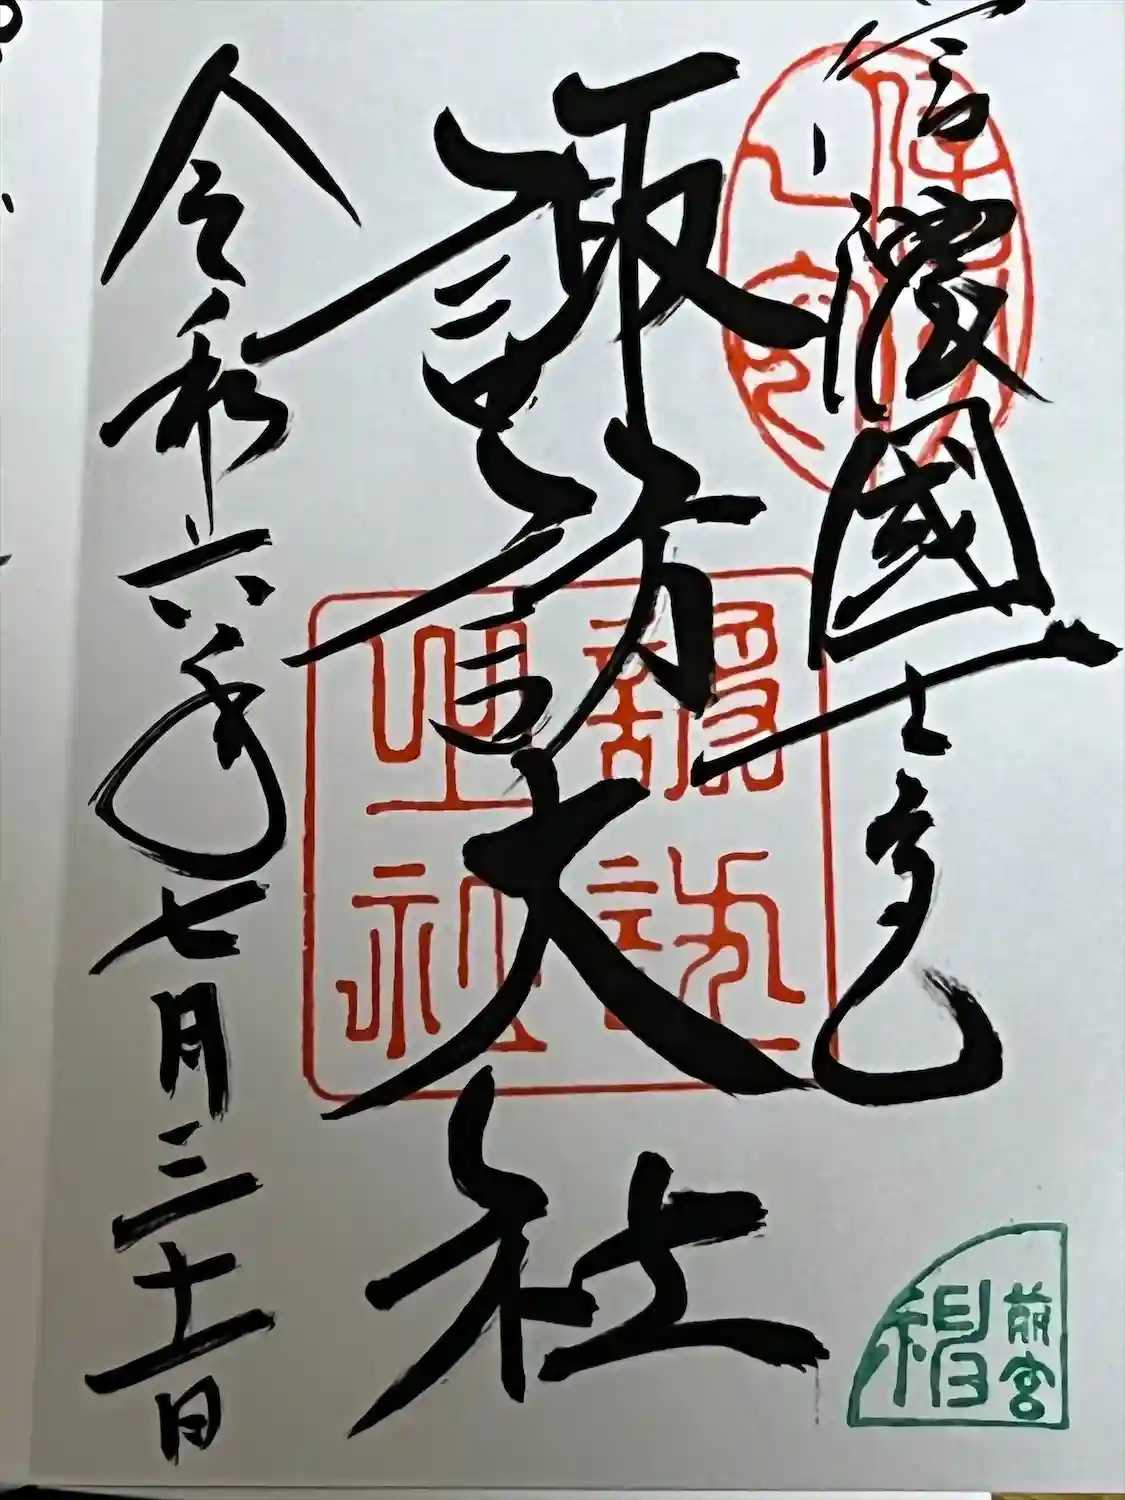 信濃國一之宮
諏訪大社
令和六年七月三十一日
諏訪
前宮